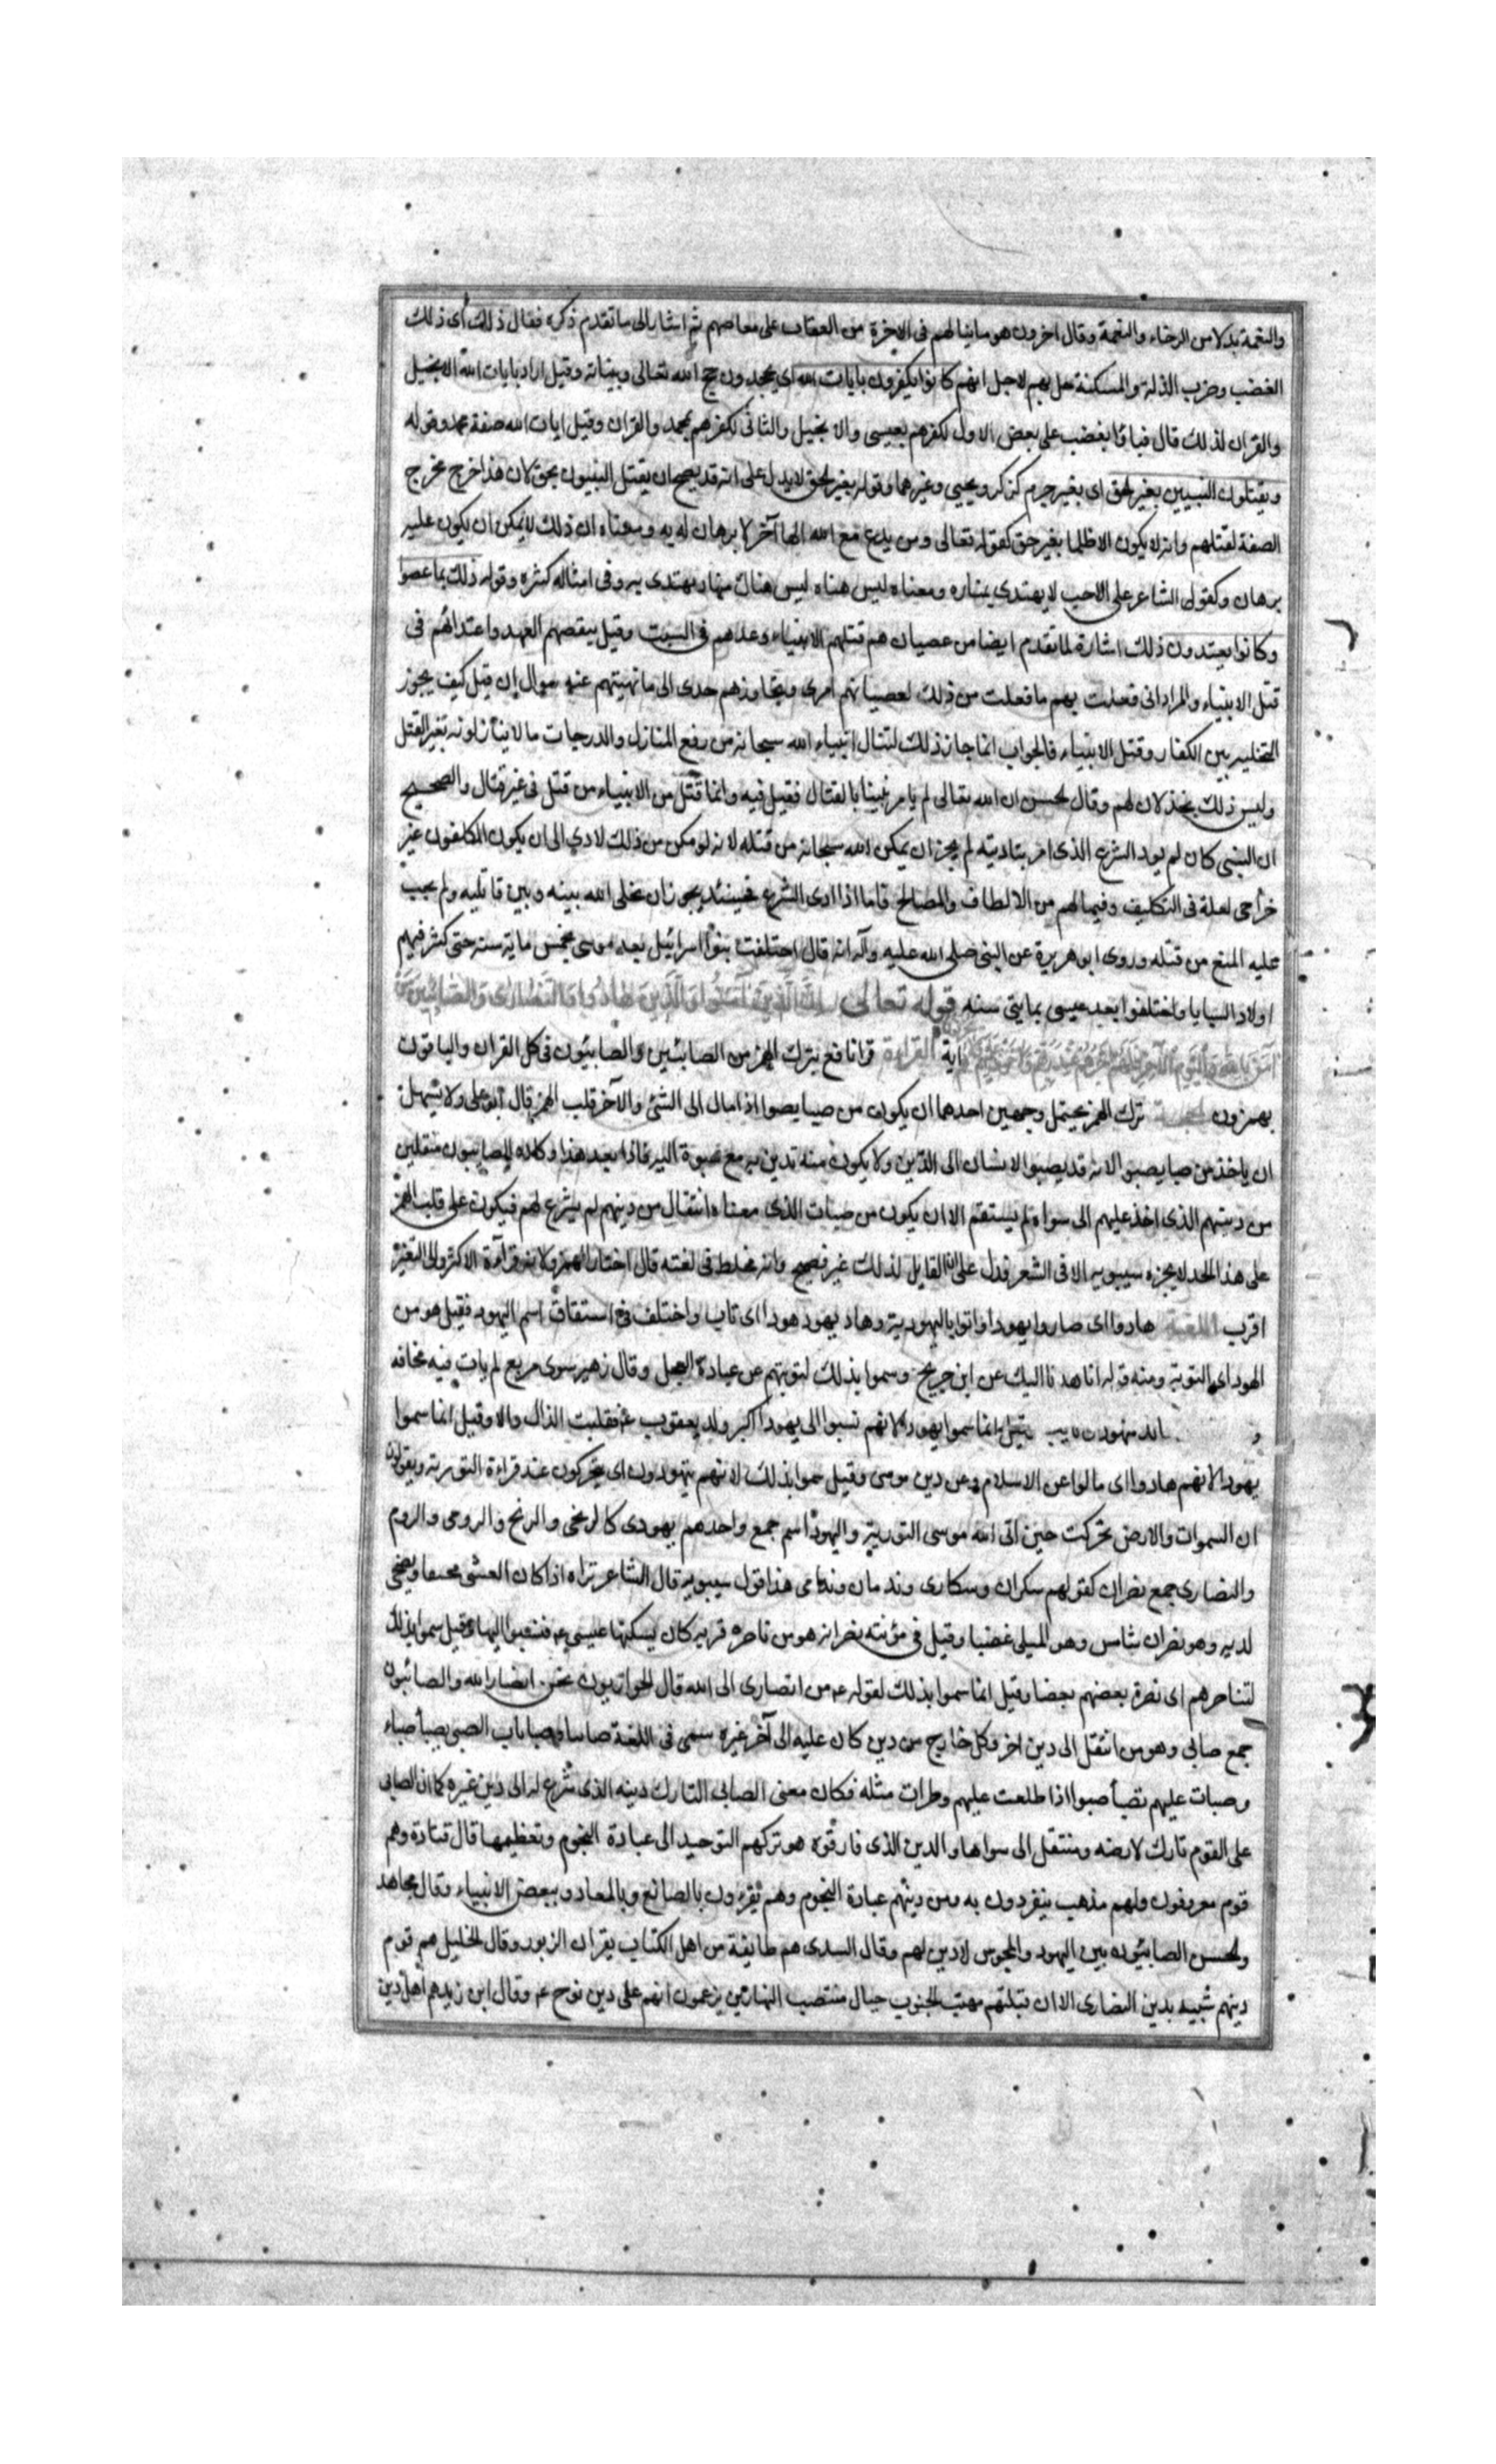 والنقمة بدلا من الرخاء والنعمة وقال اخرون هو ما ينالهم فى الاخرة من العقاب على معاصيهم ثم اشار الى ما تقدم ذكره فقال ذلك اى ذلك
الغضب وضرب الذلة والمسكنة حل بهم لاجل انهم كانوا يكفرون بايات الله اى يجحدون حجج الله تعالى وبيناته وقيل اراد بايات الله الانجيل
والقران لذلك قال فباؤا بغضب على بعض الاول لكفرهم بعيسى والانجيل والثانى لكفرهم بمحمد والقران وقيل ايات الله صفة محمد وقوله
ويقتلون النبيين بغير الحق اى بغير جرم كزكريا ويحيى وغيرهما وقوله بغير الحق لا يدل على انه قد يصح ان يقتل النبيون بحق لان هذا خرج مخرج
الصفة لقتلهم وانه لا يكون الا ظلما بغير حق كقوله تعالى ومن يدع مع الله الها آخر لا برهان له به ومعناه ان ذلك لا يمكن ان يكون عليه
برهان وكقول الشاعر على لاحب لا يهتدى بمناره ومعناه ليس هناه ليس هناك منار يهتدى به وفى امثاله كثره وقوله ذلك بما عصوا
وكانوا يعتدون ذلك اشارة لما تقدم ايضا من عصيان هم قتلهم الانبياء وعدهم فى السبت وقيل بنقضهم العهد واعتدائهم فى
قتل الانبياء والمراد انى فعلت بهم ما فعلت من ذلك لعصيانهم امرى وتجاوزهم حدى الى ما نهيتهم عنه سوال ان قيل كيف يجوز
التخليه بين الكفار وقتل الانبياء فالجواب انما جاز ذلك لتنال انبياء الله سبحانه من رفع المنازل والدرجات ما لا ينالونه بغير القتل
وليس ذلك بخذلان لهم وقال الحسن ان الله تعالى لم يامر نبيا بالقتال فقتل فيه وانما قتل من الانبياء من قتل فى غير قتال والصحيح
ان النبى كان لم يود الشرع الذى امر بتاديته لم يجز ان يمكن الله سبحانه من قتله لانه لو مكن من ذلك لادى الى ان يكون المكلفون غير
مزاحى لعلة فى التكليف وفيما لهم من الالطاف والمصالح فاما اذا ادى الشرع فحينئذ يجوز ان يخلى الله بينه وبين قاتليه ولم يجب
عليه المنع من قتله وروى ابو هريرة عن النبى صلى الله عليه وآله انه قال اختلفت بنوا اسرائيل بعد موسى بخمس مايه سنه حتى كثر فيهم
اولاد السبايا واختلفوا بعد عيسى بمايتى سنه قوله تعالى ان الذين آمنوا والذين هادوا والنصارى والصابئين من
آمن بالله واليوم الآخر آية القراءة قرا نافع بترك الهمز من الصابئين والصابئون فى كل القران والباقون
بهمزون الحجة ترك الهمز يحتمل وجهين احدهما ان يكون من صبا يصبوا اذا مال الى الشئ والآخر قلب الهمز قال ابو على ولا يسهل
ان ياخذ من صبا يصبو لانه قد يصبو الانسان الى الدين ولا يكون منه تدين به مع صبوة اليه فاذا بعد هذا وكان الصابيون منتقلين
من دينهم الذى اخذ عليهم الى سواه لم يستقم الا ان يكون من صبات الذى معناه انتقال من دينهم لم يشرع لهم فيكون على قلب الهمز
على هذا الحد لا يجزه سيبويه الا فى الشعر فدل على ان القايل لذلك غير فصيح وانه مخلط فى لغته قال اختار الهمز ولانه قراءة الاكثر والى التفسير
اقرب اللغة هادوا اى صاروا يهودا واتوا باليهودية وهاد يهود هودا اى تاب واختلف فى اشتقاق اسم اليهود فقيل هو من
الهود اى التوبة ومنه قوله انا هدنا اليك عن ابن جريج وسموا بذلك لتوبتهم عن عبادة العجل وقال زهير سوى مربع لم يات فيه مخافه
انما سموا يهود لانهم نسبوا الى يهودا اكبر ولد يعقوب عم فقلبت الذال دالا وقيل انما سموا
يهودا لانهم هادوا اى مالوا عن الاسلام وعن دين موسى وقيل سموا بذلك لانهم يتهودون اى يتحركون عند قراءة التوريه ويقولون
ان السموات والارض تحركت حين اتى الله موسى التورية واليهود اسم جمع واحدهم يهودى كالزنجى والزنج والرومى والروم
والنصارى جمع نصران كقولهم سكران وسكارى وندمان وندامى هذا قول سيبويه قال الشاعر تراه اذا كان العشى محنفا ويضحى
لديه وهو نصران شامس وقيل فى مؤنثه نصرانه هو من ناصره قريه كان يسكنها عيسى عم فنسبوا اليها وقيل سموا بذلك
لتناصرهم اى نصرة بعضهم بعضا وقيل انما سموا بذلك لقوله عم من انصارى الى الله قال الحواريون نحن انصار الله والصائبون
جمع صابى وهو من انتقل الى دين اخر وكل خارج من دين كان عليه الى آخر غيره سمى فى اللغة صابيا الصبى يصبأ صباء
وصبات عليهم تصبأ صبوا اذا طلعت عليهم وطرات مثله فكان معنى الصابى التارك دينه الذى شرع له الى دين غيره كما ان الصابى
على القوم تارك لارضه ومنتقل الى سواها والدين الذى فارقوه هو تركهم التوحيد الى عبادة النجوم وتعظيمها قال قتادة وهم
قوم معروفون ولهم مذهب ينفردون به ومن دينهم عبادة النجوم وهم يقرون بالصانع وبالمعاد وببعض الانبياء وقال مجاهد
والحسن الصابئون بين اليهود والمجوس لا دين لهم وقال السدى هم طايفة من اهل الكتاب يقران الزبور وقال الخليل هم قوم
دينهم شبيه بدين النصارى الا ان قبلتهم مهب الجنوب حيال منتصف النهار يزعمون انهم على دين نوح عم وقال ابن زيد هم اهل دين